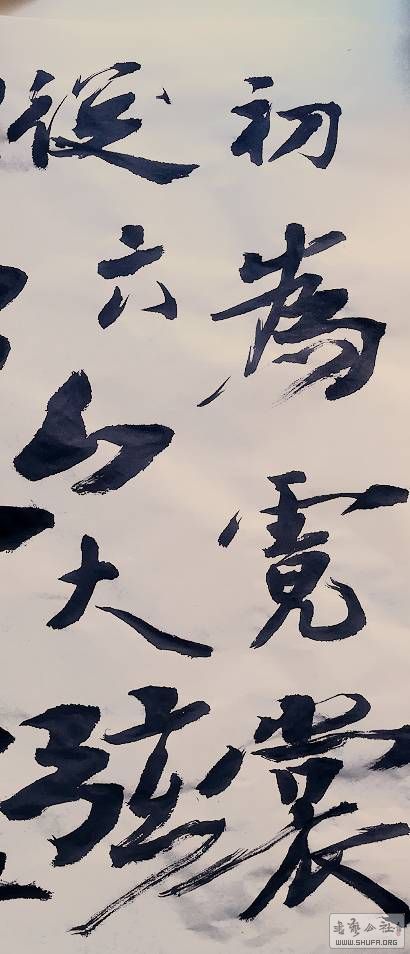 初為霓裳
後六幺大弦
书艺公社
WWW.SHUFA.ORG